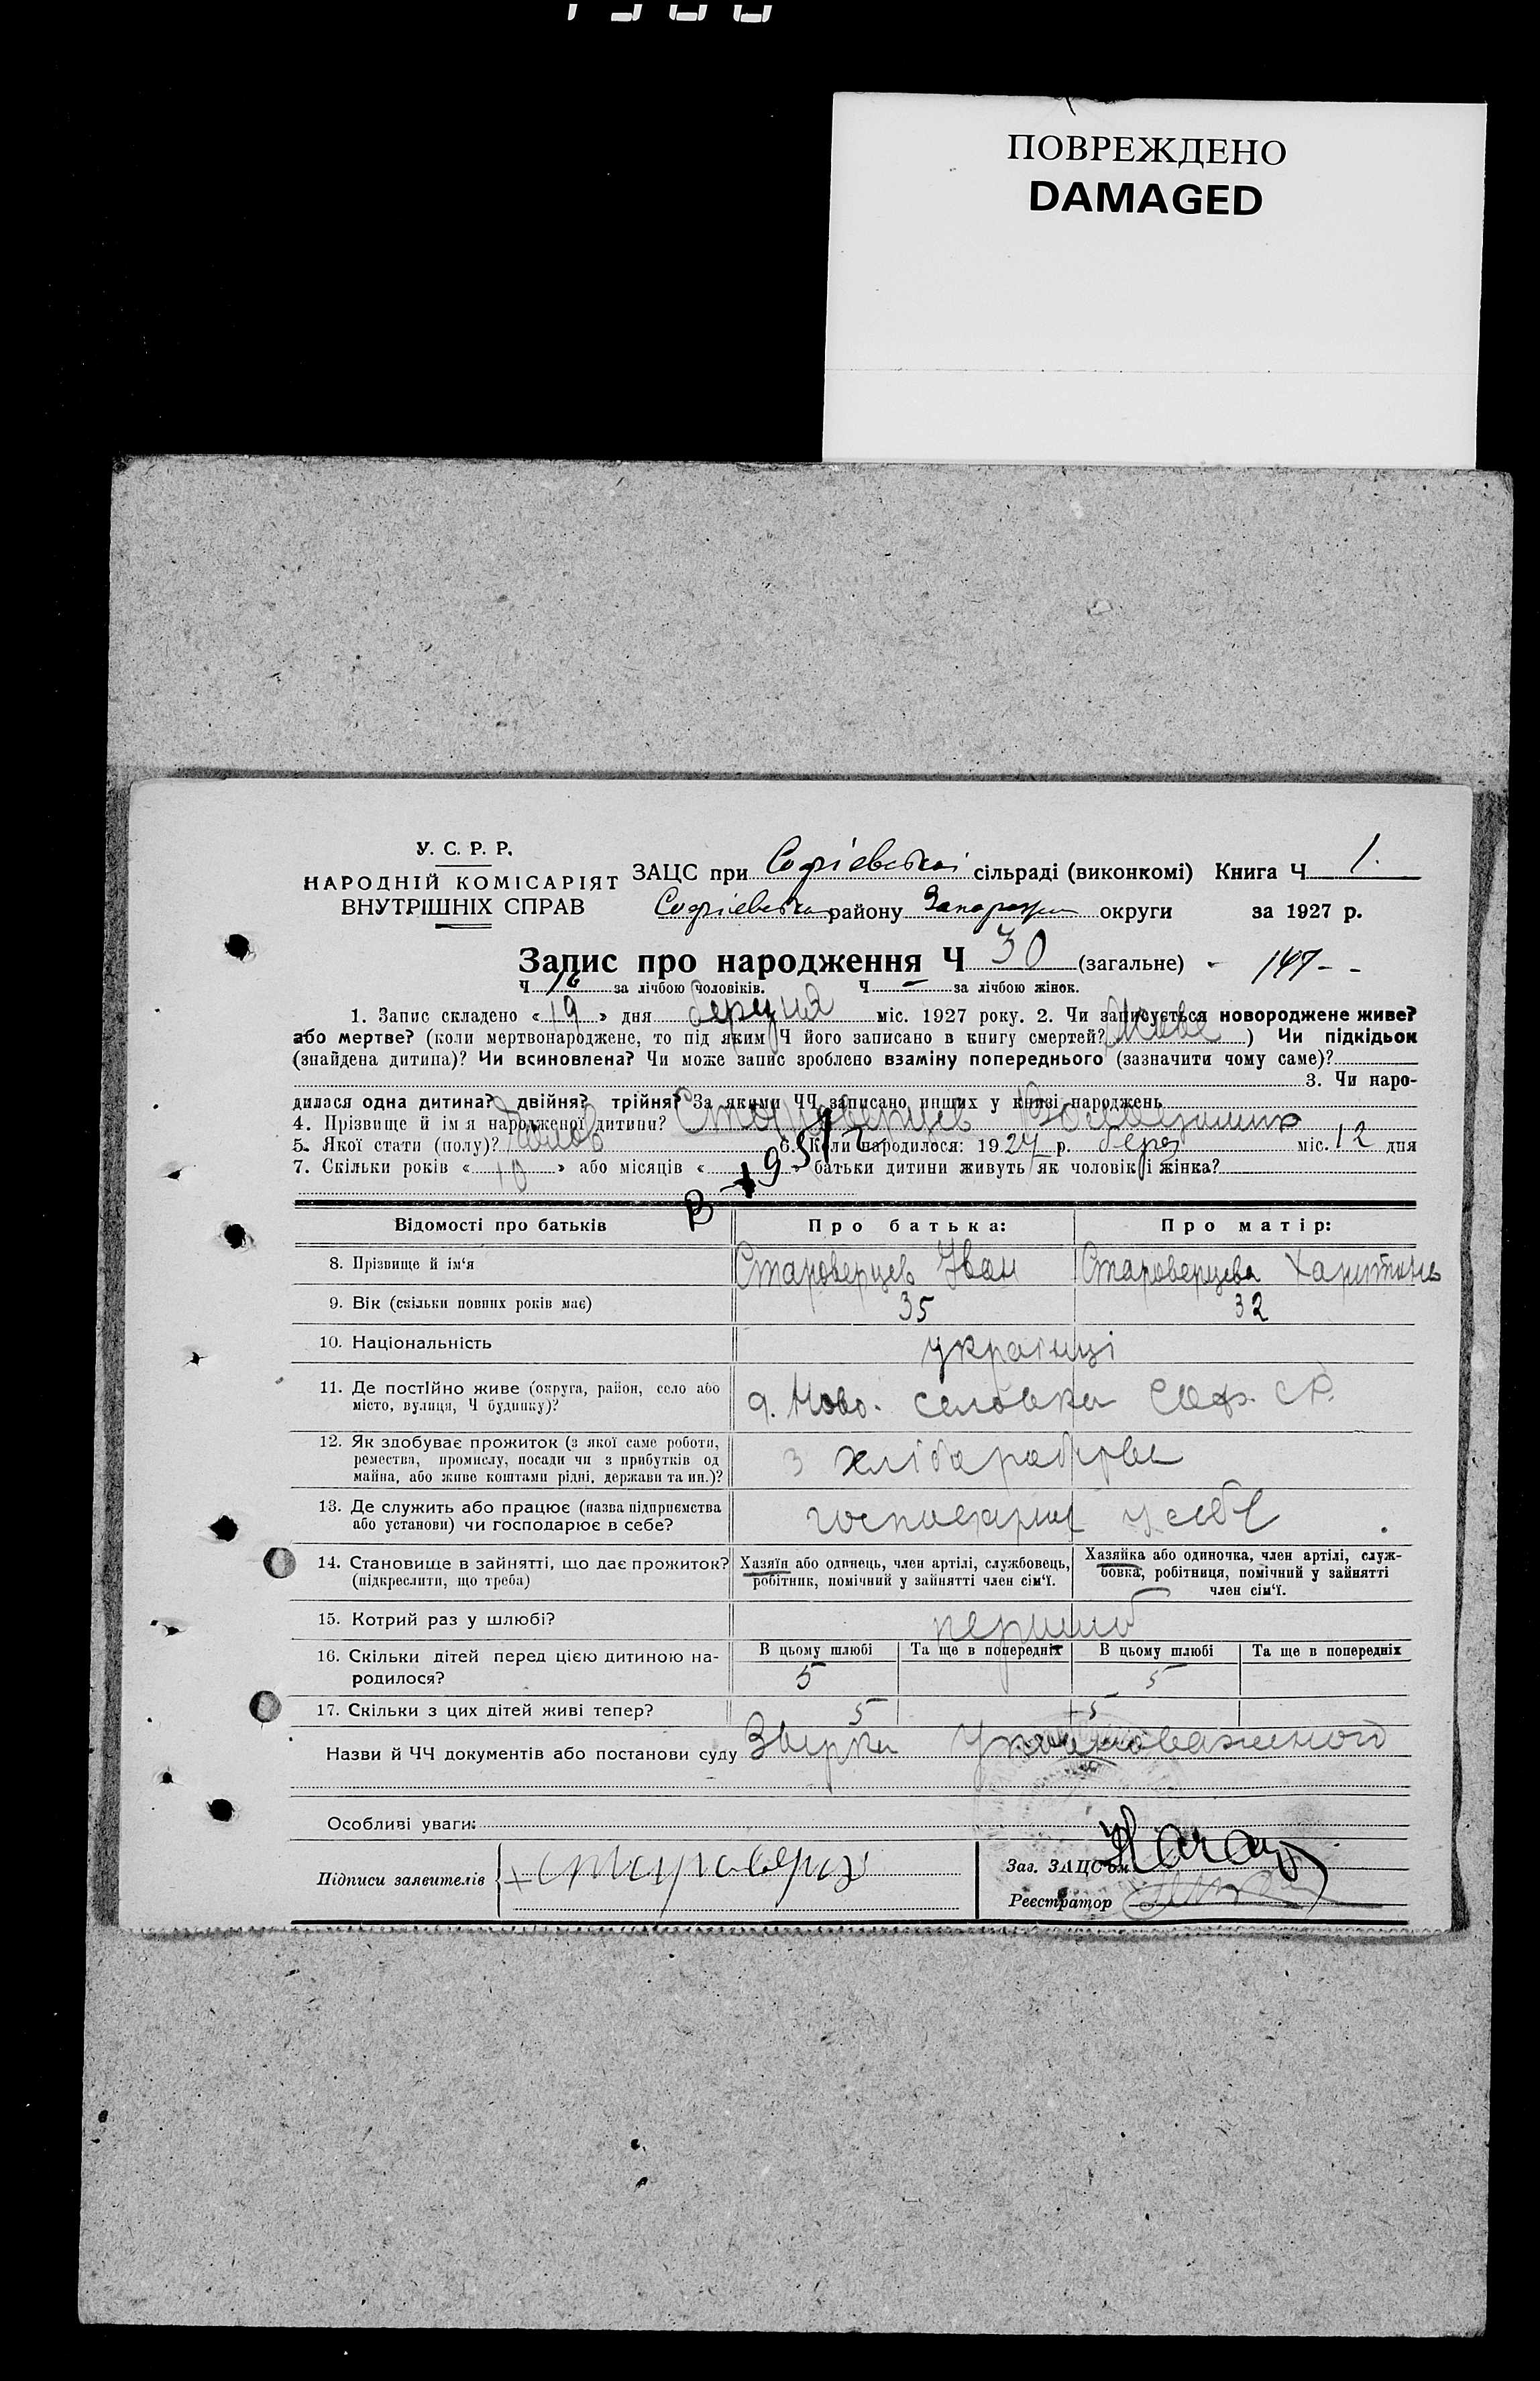 ПОВРЕЖДЕНО
DAMAGED
У. С. Р. Р.
НАРОДНІЙ КОМІСАРІЯТ
ВНУТРІШНІХ СПРАВ
ЗАЦС при Софіевській сільраді (виконкомі) Книга Ч 1.
Софіевська району Запорозьк округи за 1927 р.
Запис про народження Ч 30 (загальне) - 147 - -
Ч 16 за лічбою чоловіків. Ч — за лічбою жінок.
1. Запис складено « 19 » дня березня міс. 1927 року. 2. Чи записується новороджене живе?
або мертве? (коли мертвонароджене, то під яким Ч його записано в книгу смертей? Живе ) Чи підкідьок
(знайдена дитина)? Чи всиновлена? Чи може запис зроблено взаміну попереднього (зазначити чому саме)?
3. Чи наро-
дилася одна дитина? двійня? трійня? За якими ЧЧ записано инших у книзі народжень
4. Прізвище й ім я народженої дитини? Староверцев
5. Якої стати (полу)? 6. Коли народилося: 1927 р. берез міс. 12 дня
7. Скільки років « 10 » або місяців « » батьки дитини живуть як чоловік і жінка?
Відомості про батьків Про батька: Про матір:
8. Прізвище й ім'я Староверцев Іван Староверцева
9. Вік (скільки повних років має) 35 32
10. Національність українці
11. Де постійно живе (округа, район, село або
місто, вулиця, Ч будинку)? Ново. Соф. с.р.
12. Як здобуває прожиток (з якої саме роботи,
ремества, промислу, посади чи з прибутків од
майна, або живе коштами рідні, держави та ин.)? з хліборобства
13. Де служить або працює (назва підприємства
або установи) чи господарює в себе? у себе
14. Становище в зайнятті, що дає прожиток?
(підкреслити, що треба)
Хазяїн або одинець, член артілі, службовець,
робітник, помічний у зайнятті член сім'ї.
Хазяйка або одиночка, член артілі, служ-
бовка, робітниця, помічний у зайнятті
член сім'ї.
15. Котрий раз у шлюбі? перший
16. Скільки дітей перед цією дитиною на-
родилося?
В цьому шлюбі Та ще в попередніх В цьому шлюбі Та ще в попередніх
5 5
17. Скільки з цих дітей живі тепер? 5 5
Назви й ЧЧ документів або постанови суду Уповноваженого
Особливі уваги:
Підписи заявителів
Зав. ЗАЦС'ом
Реєстратор